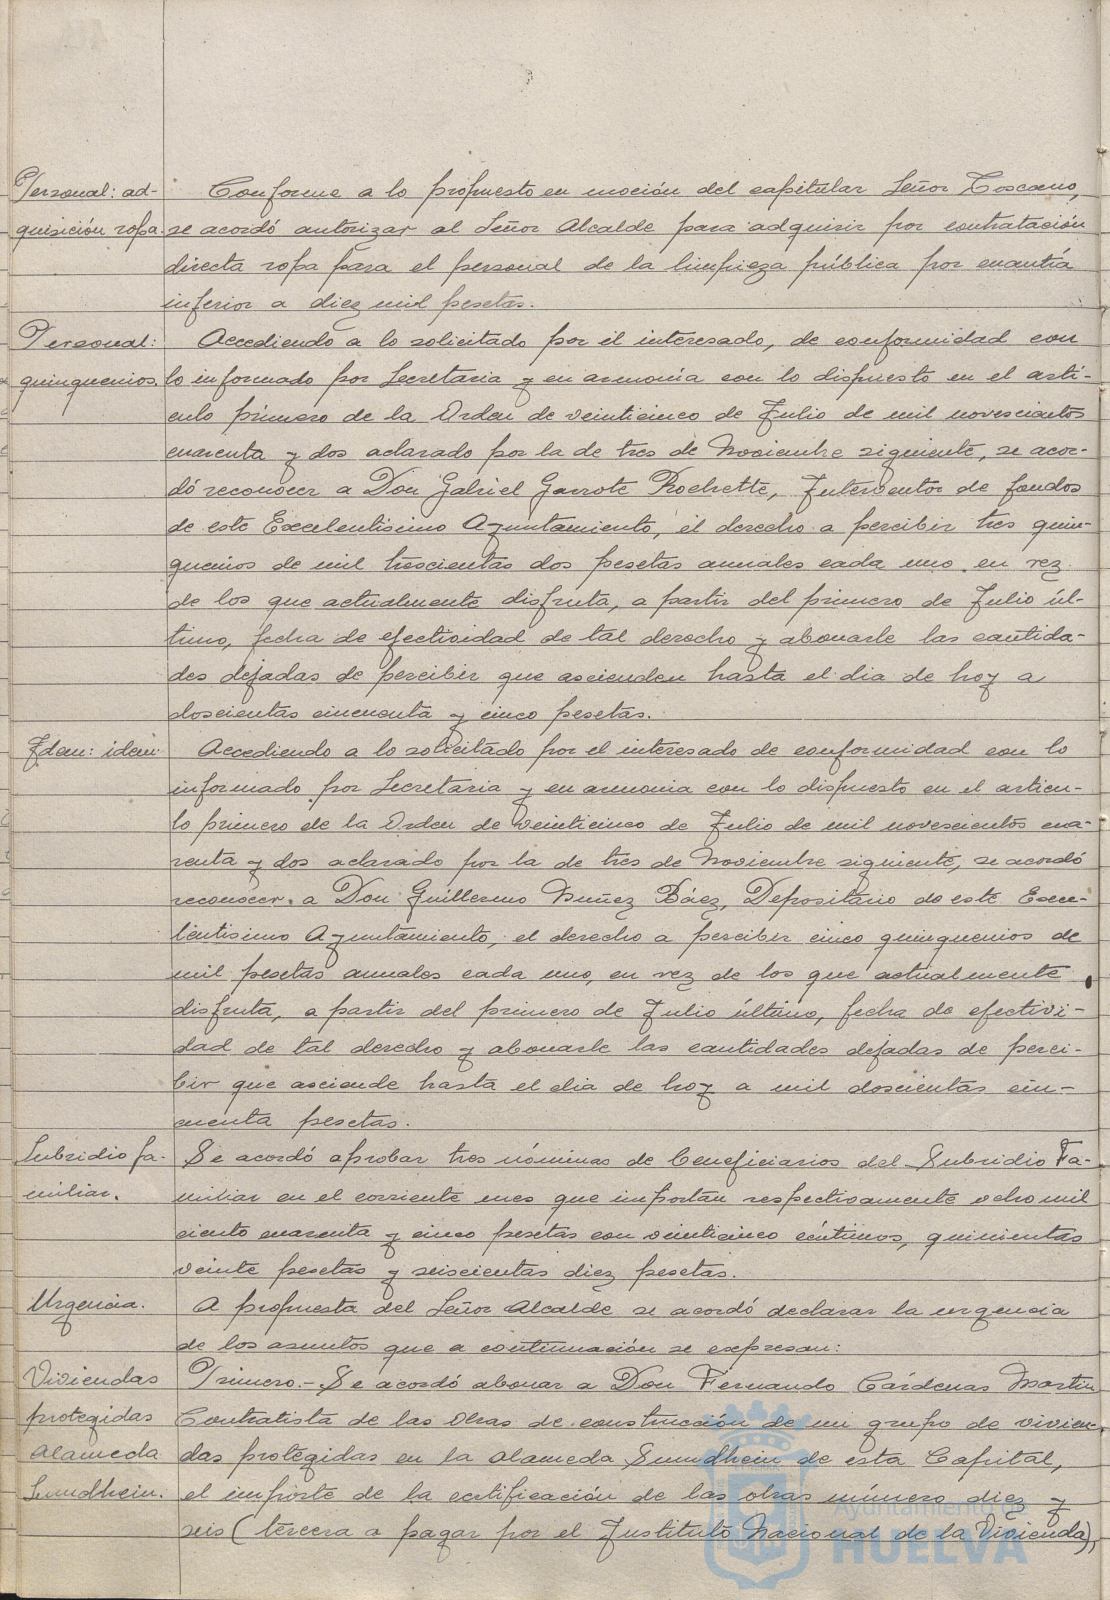 Personal: ad-
quisición ropa.
Conforme a lo propuesto en moción del capitular Señor Toscano,
se acordó autorizar al Señor Alcalde para adquirir por contratación
directa ropa para el personal de la limpieza pública por cuantía
inferior a diez mil pesetas.
Personal:
quinquenios.
Accediendo a lo solicitado por el interesado, de conformidad con
lo informado por Secretaria y en armonia con lo dispuesto en el artí-
culo primero de la Orden de veinticinco de Julio de mil novescientos
cuarenta y dos aclarado por la de tres de Noviembre siguiente, se acor-
dó reconocer a Don Gabriel Garrote Rochette, Interventor de fondos
de este Excelentisimo Ayuntamiento, el derecho a percibir tres quin-
quenios de mil trescientas dos pesetas anuales cada uno, en vez
de los que actualmente disfruta, a partir del primero de Julio úl-
timo, fecha de efectividad de tal derecho y abonarle las cantida-
des dejadas de percibir que ascienden hasta el dia de hoy a
doscientas cincuenta y cinco pesetas.
Idem: idem
Accediendo a lo solicitado por el interesado de conformidad con lo
informado por Secretaria y en armonia con lo dispuesto en el articu-
lo primero de la Orden de veinticinco de Julio de mil novescientos cua-
renta y dos aclarado por la de tres de Noviembre siguiente, se acordó
reconocer a Don Guillermo Nuñez Báez, Depositario de este Exce-
lentisimo Ayuntamiento, el derecho a percibir cinco quinquenios de
mil pesetas anuales cada uno, en vez de los que actualmente
disfruta, a partir del primero de Julio último, fecha de efectivi-
dad de tal derecho y abonarle las cantidades dejadas de perci-
bir que asciende hasta el dia de hoy a mil doscientas cin-
cuenta pesetas.
Subsidio fa-
miliar.
Se acordó aprobar tres nóminas de beneficiarios del Subsidio Fa-
miliar en el corriente mes que importan respectivamente ocho mil
ciento cuarenta y cinco pesetas con veinticinco céntimos, quinientas
veinte pesetas y seiscientas diez pesetas.
Urgencia.
A propuesta del Señor Alcalde se acordó declarar la urgencia
de los asuntos que a continuación se expresan:
Viviendas
protegidas
Alameda
Sundhein.
Primero.- Se acordó abonar a Don Fernando Cárdenas Martín
Contratista de las obras de construcción de un grupo de vivien-
das protegidas en la Alameda Sundhein de esta Capital,
el importe de la certificación de las obras número diez y
seis (tercera a pagar por el Instituto Nacional de la Vivienda),
Ayuntamiento de
HUELVA